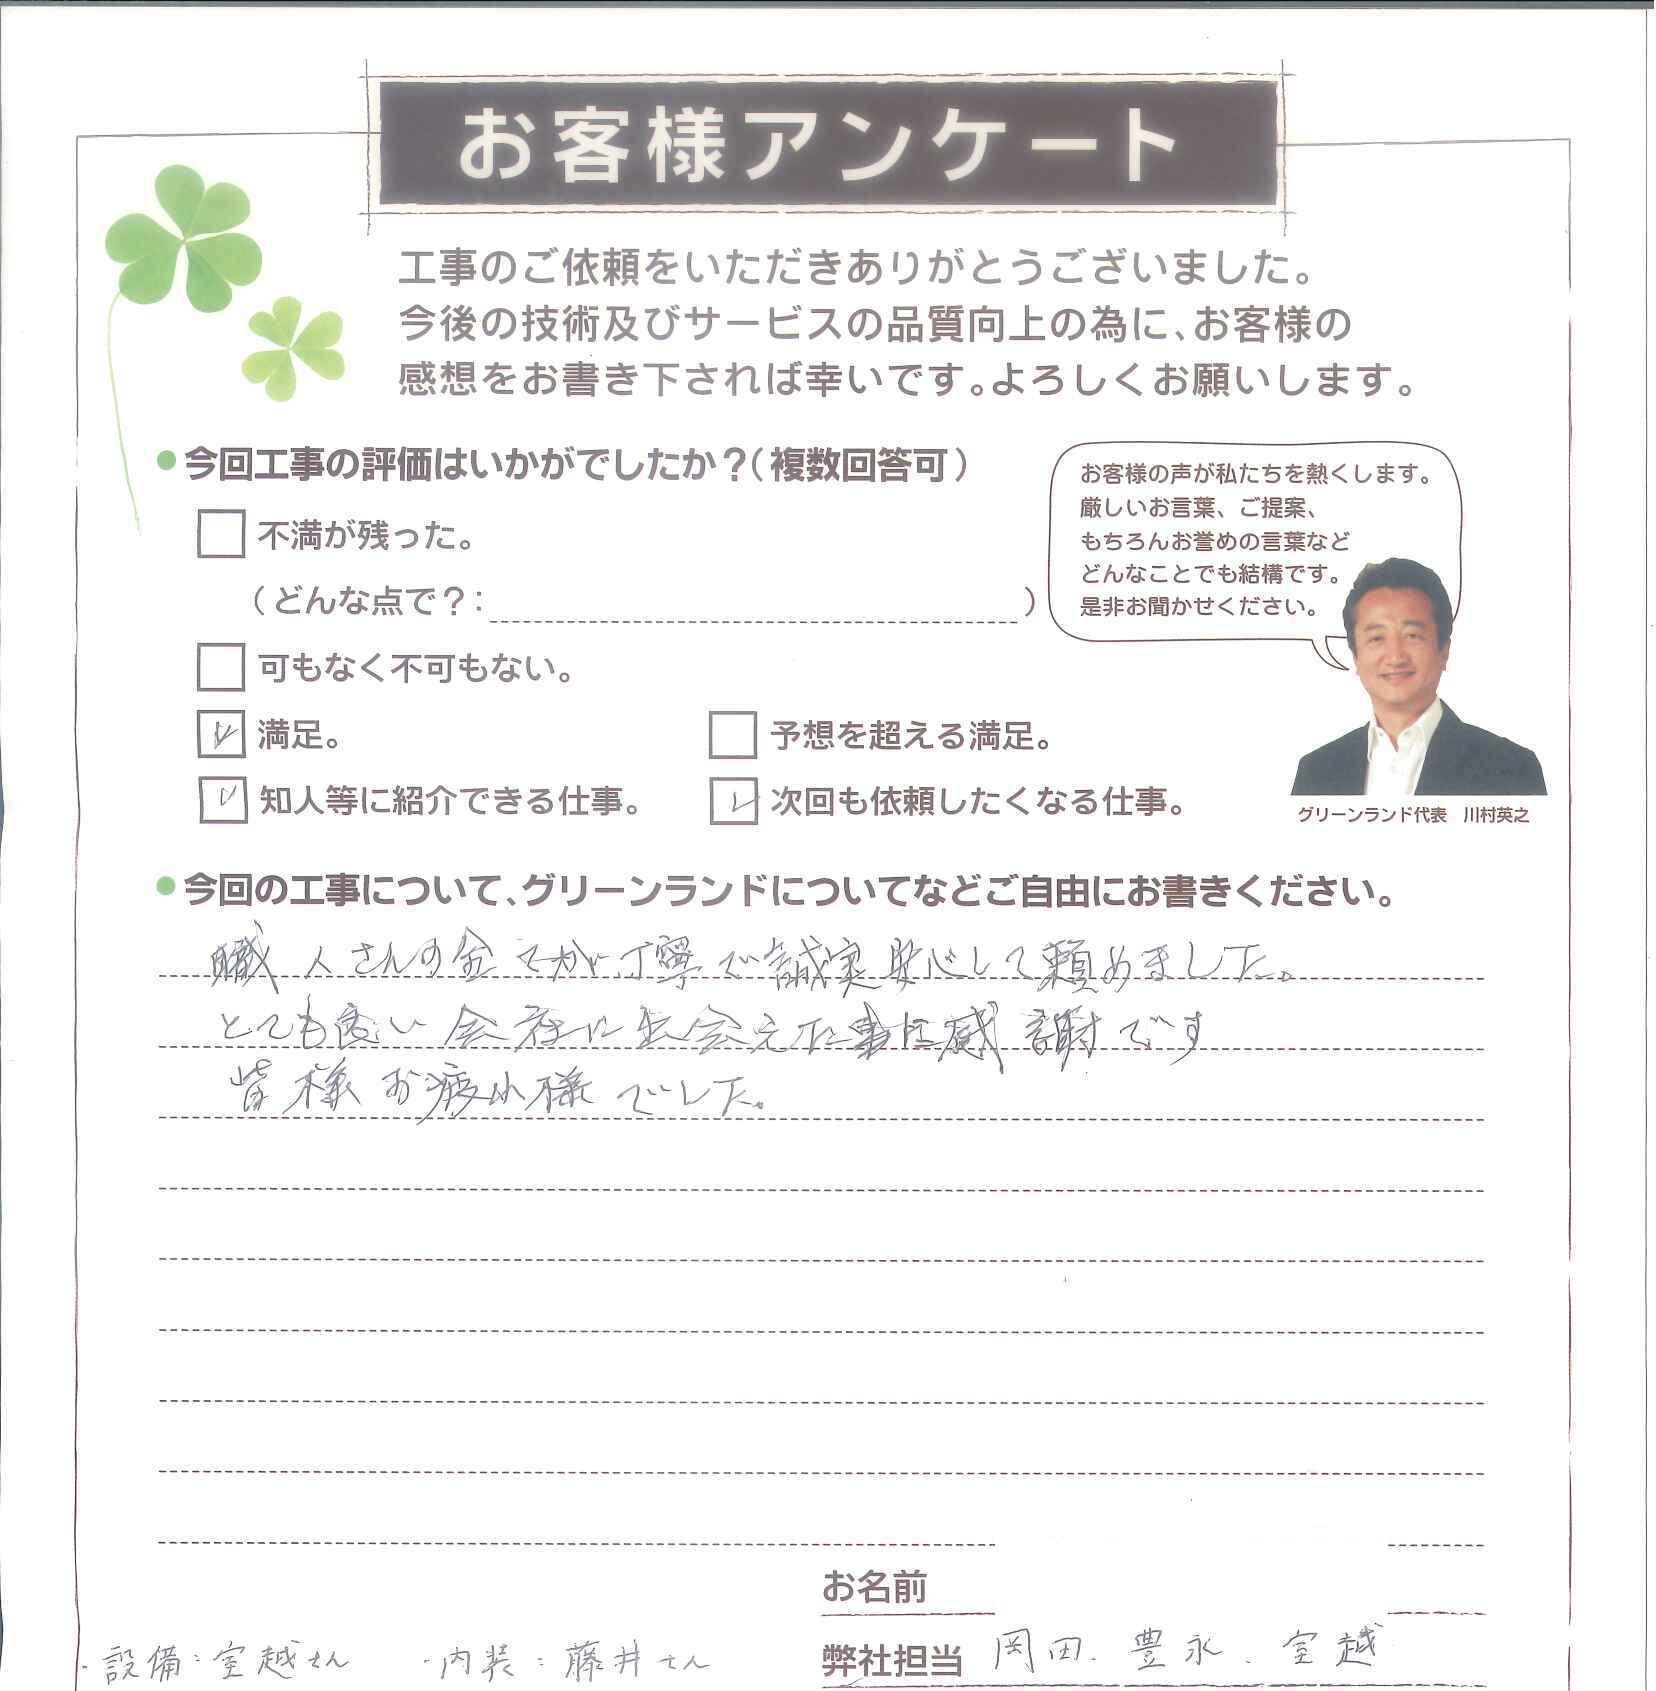 お客様アンケート
工事のご依頼をいただきありがとうございました。
今後の技術及びサービスの品質向上の為に、お客様の
感想をお書き下されば幸いです。よろしくお願いします。
今回工事の評価はいかがでしたか？(複数回答可)
不満が残った。
(どんな点で？: )
可もなく不可もない。
満足。
予想を超える満足。
知人等に紹介できる仕事。
次回も依頼したくなる仕事。
お客様の声が私たちを熱くします。
厳しいお言葉、ご提案、
もちろんお誉めの言葉など
どんなことでも結構です。
是非お聞かせください。
グリーンランド代表 川村英之
今回の工事について、グリーンランドについてなどご自由にお書きください。
職人さんの全てが丁寧で誠実安心して頼めました。
とても良い会社に出会えた事に感謝です
皆様お疲れ様でした。
お名前
弊社担当 岡田.豊永.室越
・設備:室越さん ・内装:藤井さん